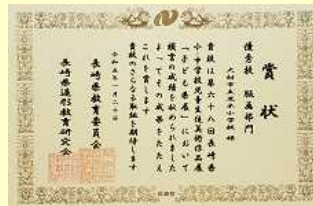 賞状
優良校 版画部門
大村市立三城小学校 様
貴校は第六十八回長崎県
小中学校児童生徒美術作品展
「子ども県展」において
頭書の成績を収められました
よってその成果をたたえ
これを賞します
貴校のさらなる取組を期待します
令和五年一月二十日
長崎県教育委員会
長崎県造形教育研究会